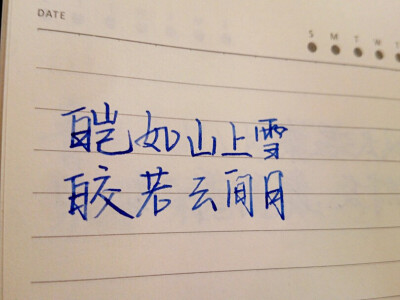 DATE
S M T W T
皑如山上雪
皎若云间月